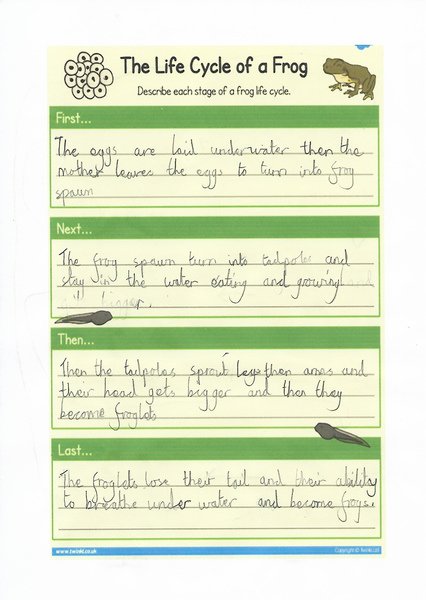 The Life Cycle of a Frog
Describe each stage of a frog life cycle.
First...
The eggs are laid underwater then the
mother leaves the eggs to turn into frog
spawn
Next...
The frog spawn turn into tadpoles and
stay in the water eating and growing
bigger.
Then...
Then the tadpoles sprout legs then arms and
their head gets bigger and then they
become froglets
Last...
The froglets lose their tail and their ability
to breathe under water and become frogs.
www.twinkl.co.uk